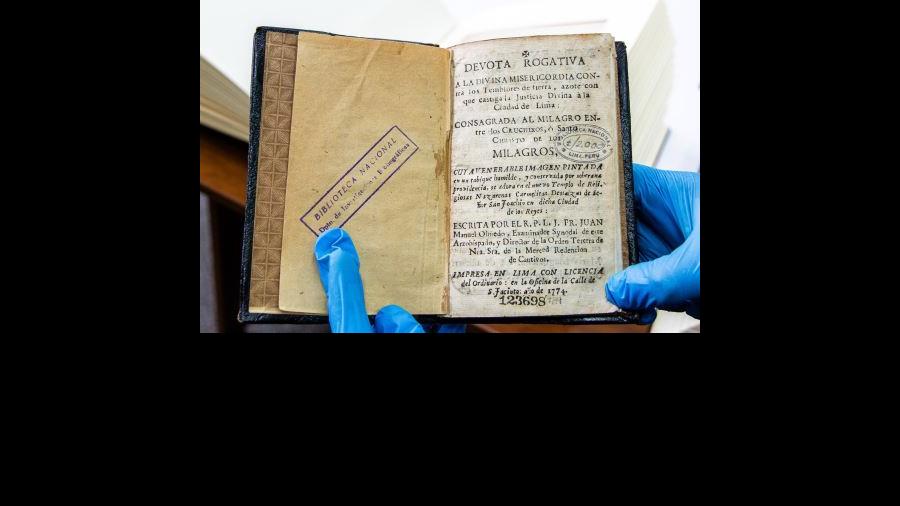 BIBLIOTECA NACIONAL
Dpto. de Investigaciones Bibliográficas
DEVOTA ROGATIVA
A LA DIVINA MISERICORDIA CON-
tra los Temblores de tierra, azote con
que castiga la Justicia Divina à la
Ciudad de Lima:
CONSAGRADA AL MILAGRO EN-
tre los CRUCIFIXOS, ò Santo
CHRISTO DE LOS
MILAGROS,
CUYA VENERABLE IMAGEN PINTADA
en un tabique humilde, y conservada por soberana
providencia, se adora en el nuevo Templo de Reli-
giosas Nazarenas Carmelitas Descalzas de Se-
ñor San Joachin en dicha Ciudad
de los Reyes:
ESCRITA POR EL R. P. L. J. FR. JUAN
Manuel Olmedo, Examinador Synodal de este
Arzobispado, y Director de la Orden Tercera de
Nra. Sra. de la Merced Redencion
de Cautivos.
IMPRESA EN LIMA CON LICENCIA
del Ordinario: en la Oficina de la Calle de
S. Jacinto: año de 1774.
123698
LIMA-PERU